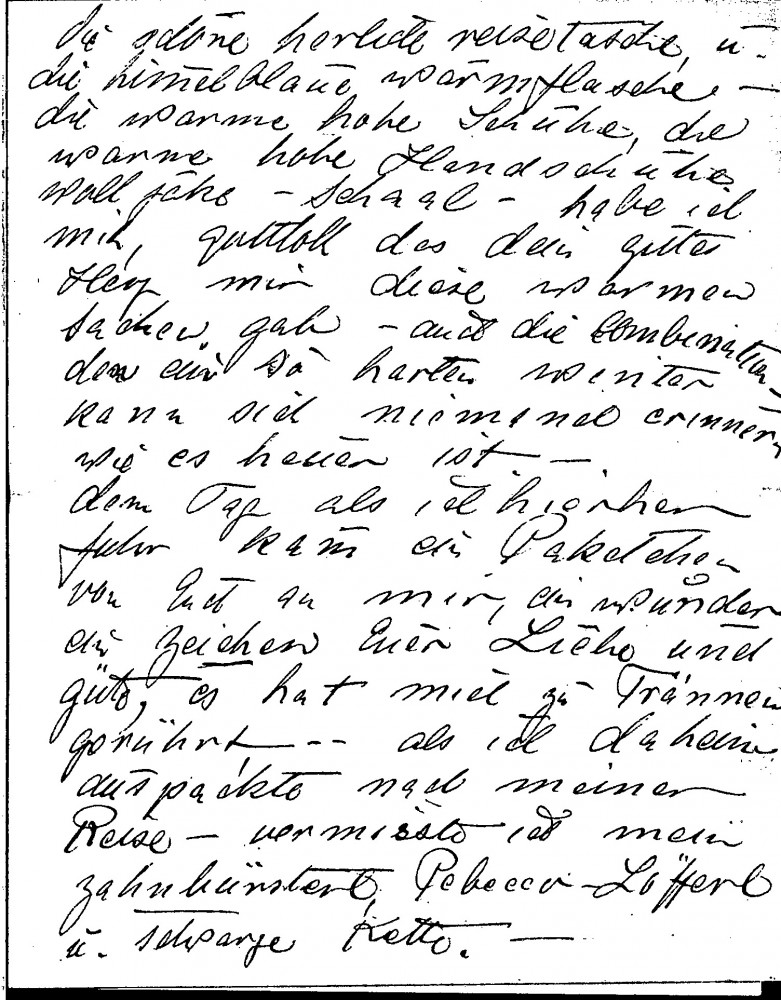 die schöne herliche reisetasche, u.
die himelblaue wärmflasche. —
die warme hohe Schuhe, die
warme hohe Handschuhe
wolljake - Schaal - habe ich
mit, gottlob das dein gutes
Herz mir diese warmen
sachen gab - auch die Combination
den ein so harten winter
kann sich niemand erinnern
wie es heuer ist —
dem Tag als ich hierher
fuhr kam ein Paketchen
von Euch an mir, ein wunder
ein zeichen Euer Liebe und
güte, es hat mich zu Trännen
gerührt -- als ich daheim
auspackte nach meiner
Reise — vermisste ich mein
zahnbürsterl, Rebecca-Löfferl
u. schwarze Kette. —